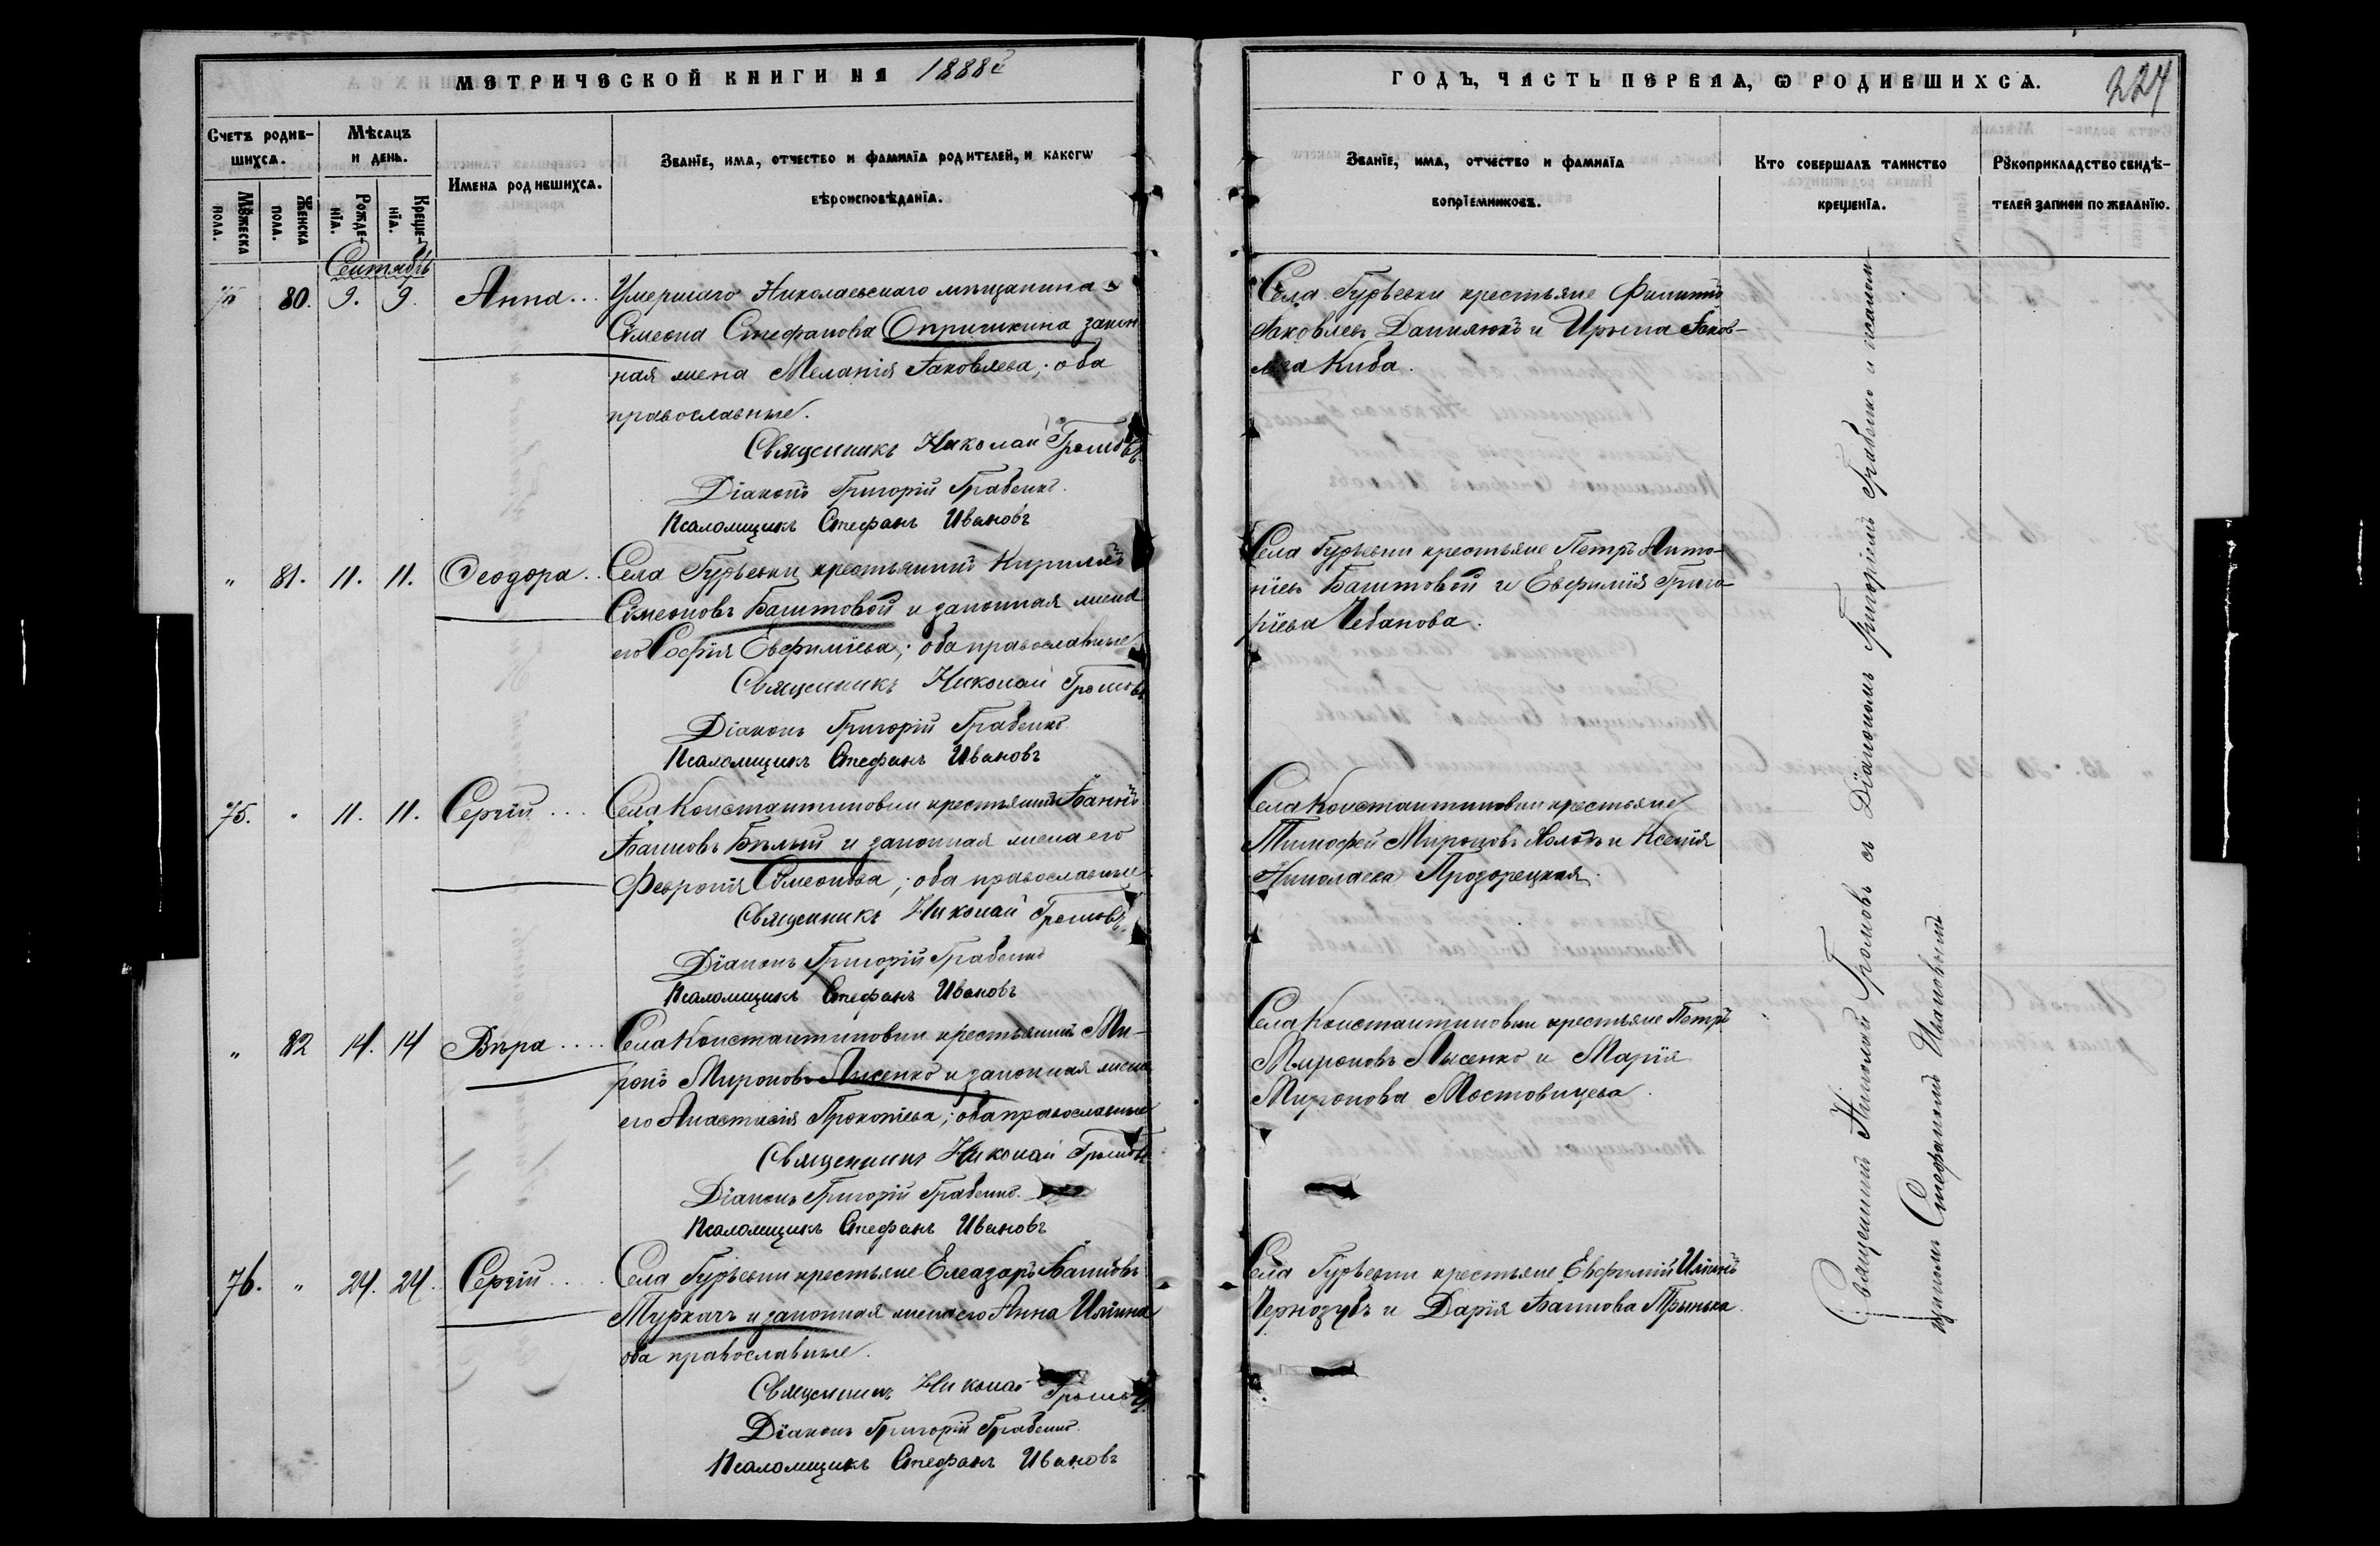 МЕТРИЧЕСКОЙ КНИГИ НА 1888й
ГОДЪ, ЧАСТЬ ПЕРВАѦ, Ѡ РОДИВШИХСѦ.
224
Счетъ родив-
шихсѧ.
Мѣсѧцъ
и день.
Имена родившихсѧ.
Званїе, имѧ, отчество и фамилїѧ родителей, и какогѡ
вѣроисповѣданїѧ.
Мꙋжеска
пола.
Женска
пола.
Рожде-
нїѧ.
Креще-
нїѧ.
Званїе, имѧ, отчество и фамилїѧ
воспрїемниковъ.
Кто совершалъ таинство
крещенїѧ.
Рꙋкоприкладство свидѣ-
телей записи по желанїю.
Сентябрь
80. 9. 9. Анна...
Умершаго Николаевскаго мѣщанина
Сѵмеона Стефанова Опришкина закон
ная жена Меланія Іаковлева; оба
православные.
Священникъ Николай Громовъ
Діаконъ Григорій Грабенко.
Псаломщикъ Стефанъ Ивановъ
Села Гурьевки крестьяне Филиппъ
Іаковлевъ Данилюкъ и Ирина Іаков-
лева Киба.
" 81. 11. 11. Ѳеодора..
Села Гурьевки крестьянинъ Кириллъ
Сѵмеоновъ Баштовой и законная жена
его Софія Евфиміева; оба православные
Священникъ Николай Громовъ
Діаконъ Григорій Грабенко
Псаломщикъ Стефанъ Ивановъ
Села Гурьевки крестьяне Петръ Анто-
ніевъ Баштовой и Евфимія Григо-
ріева Чебанова.
75. " 11. 11. Сергій...
Села Константиновки крестьянинъ Іоаннъ
Іоанновъ Бѣлый и законная жена его
Февронія Сѵмеонова; оба православные
Священникъ Николай Громовъ
Діаконъ Григорій Грабенко
Псаломщикъ Стефанъ Ивановъ
Села Константиновки крестьяне
Тимофей Мироновъ и Ксенія
Николаева
" 82 14. 14 Вѣра....
Села Константиновки крестьянинъ Ми-
ронъ Мироновъ Лысенко и законная жена
его Анастасія Прокопіева; оба православные
Священникъ Николай Громовъ
Діаконъ Григорій Грабенко.
Псаломщикъ Стефанъ Ивановъ
Села Константиновки крестьяне Петръ
Мироновъ Лысенко и Марія
Миронова Мостовицева.
76. " 24. 24. Сергій....
Села Гурьевки крестьяне Елеазаръ Іоанновъ
Туркачъ и законная жена его Анна Иліина
оба православные.
Священникъ Николай Громовъ
Діаконъ Григорій Грабенко.
Псаломщикъ Стефанъ Ивановъ
Села Гурьевки крестьяне Евфимій Иліинъ
Чернозубъ и Дарія Іоаннова Трынька.
Священникъ Николай Громовъ съ Діакономъ Григоріемъ Грабенко и псалом-
щикомъ Стефаномъ Ивановымъ